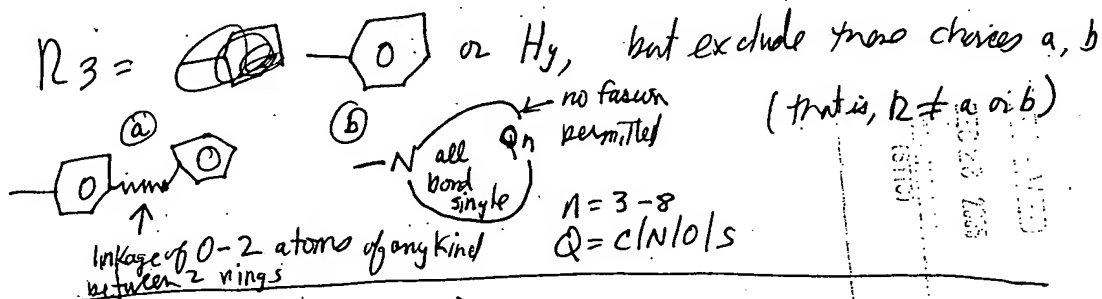 R3 = O or Hy, but exclude these choices a, b
(that is, R ≠ a or b)
a
b
no fusion permitted
O O
N all bond single Qn
n = 3-8
Q = C|N|O|S
linkage of 0-2 atoms of any kind
between 2 rings